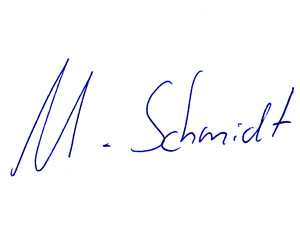 M. Schmidt